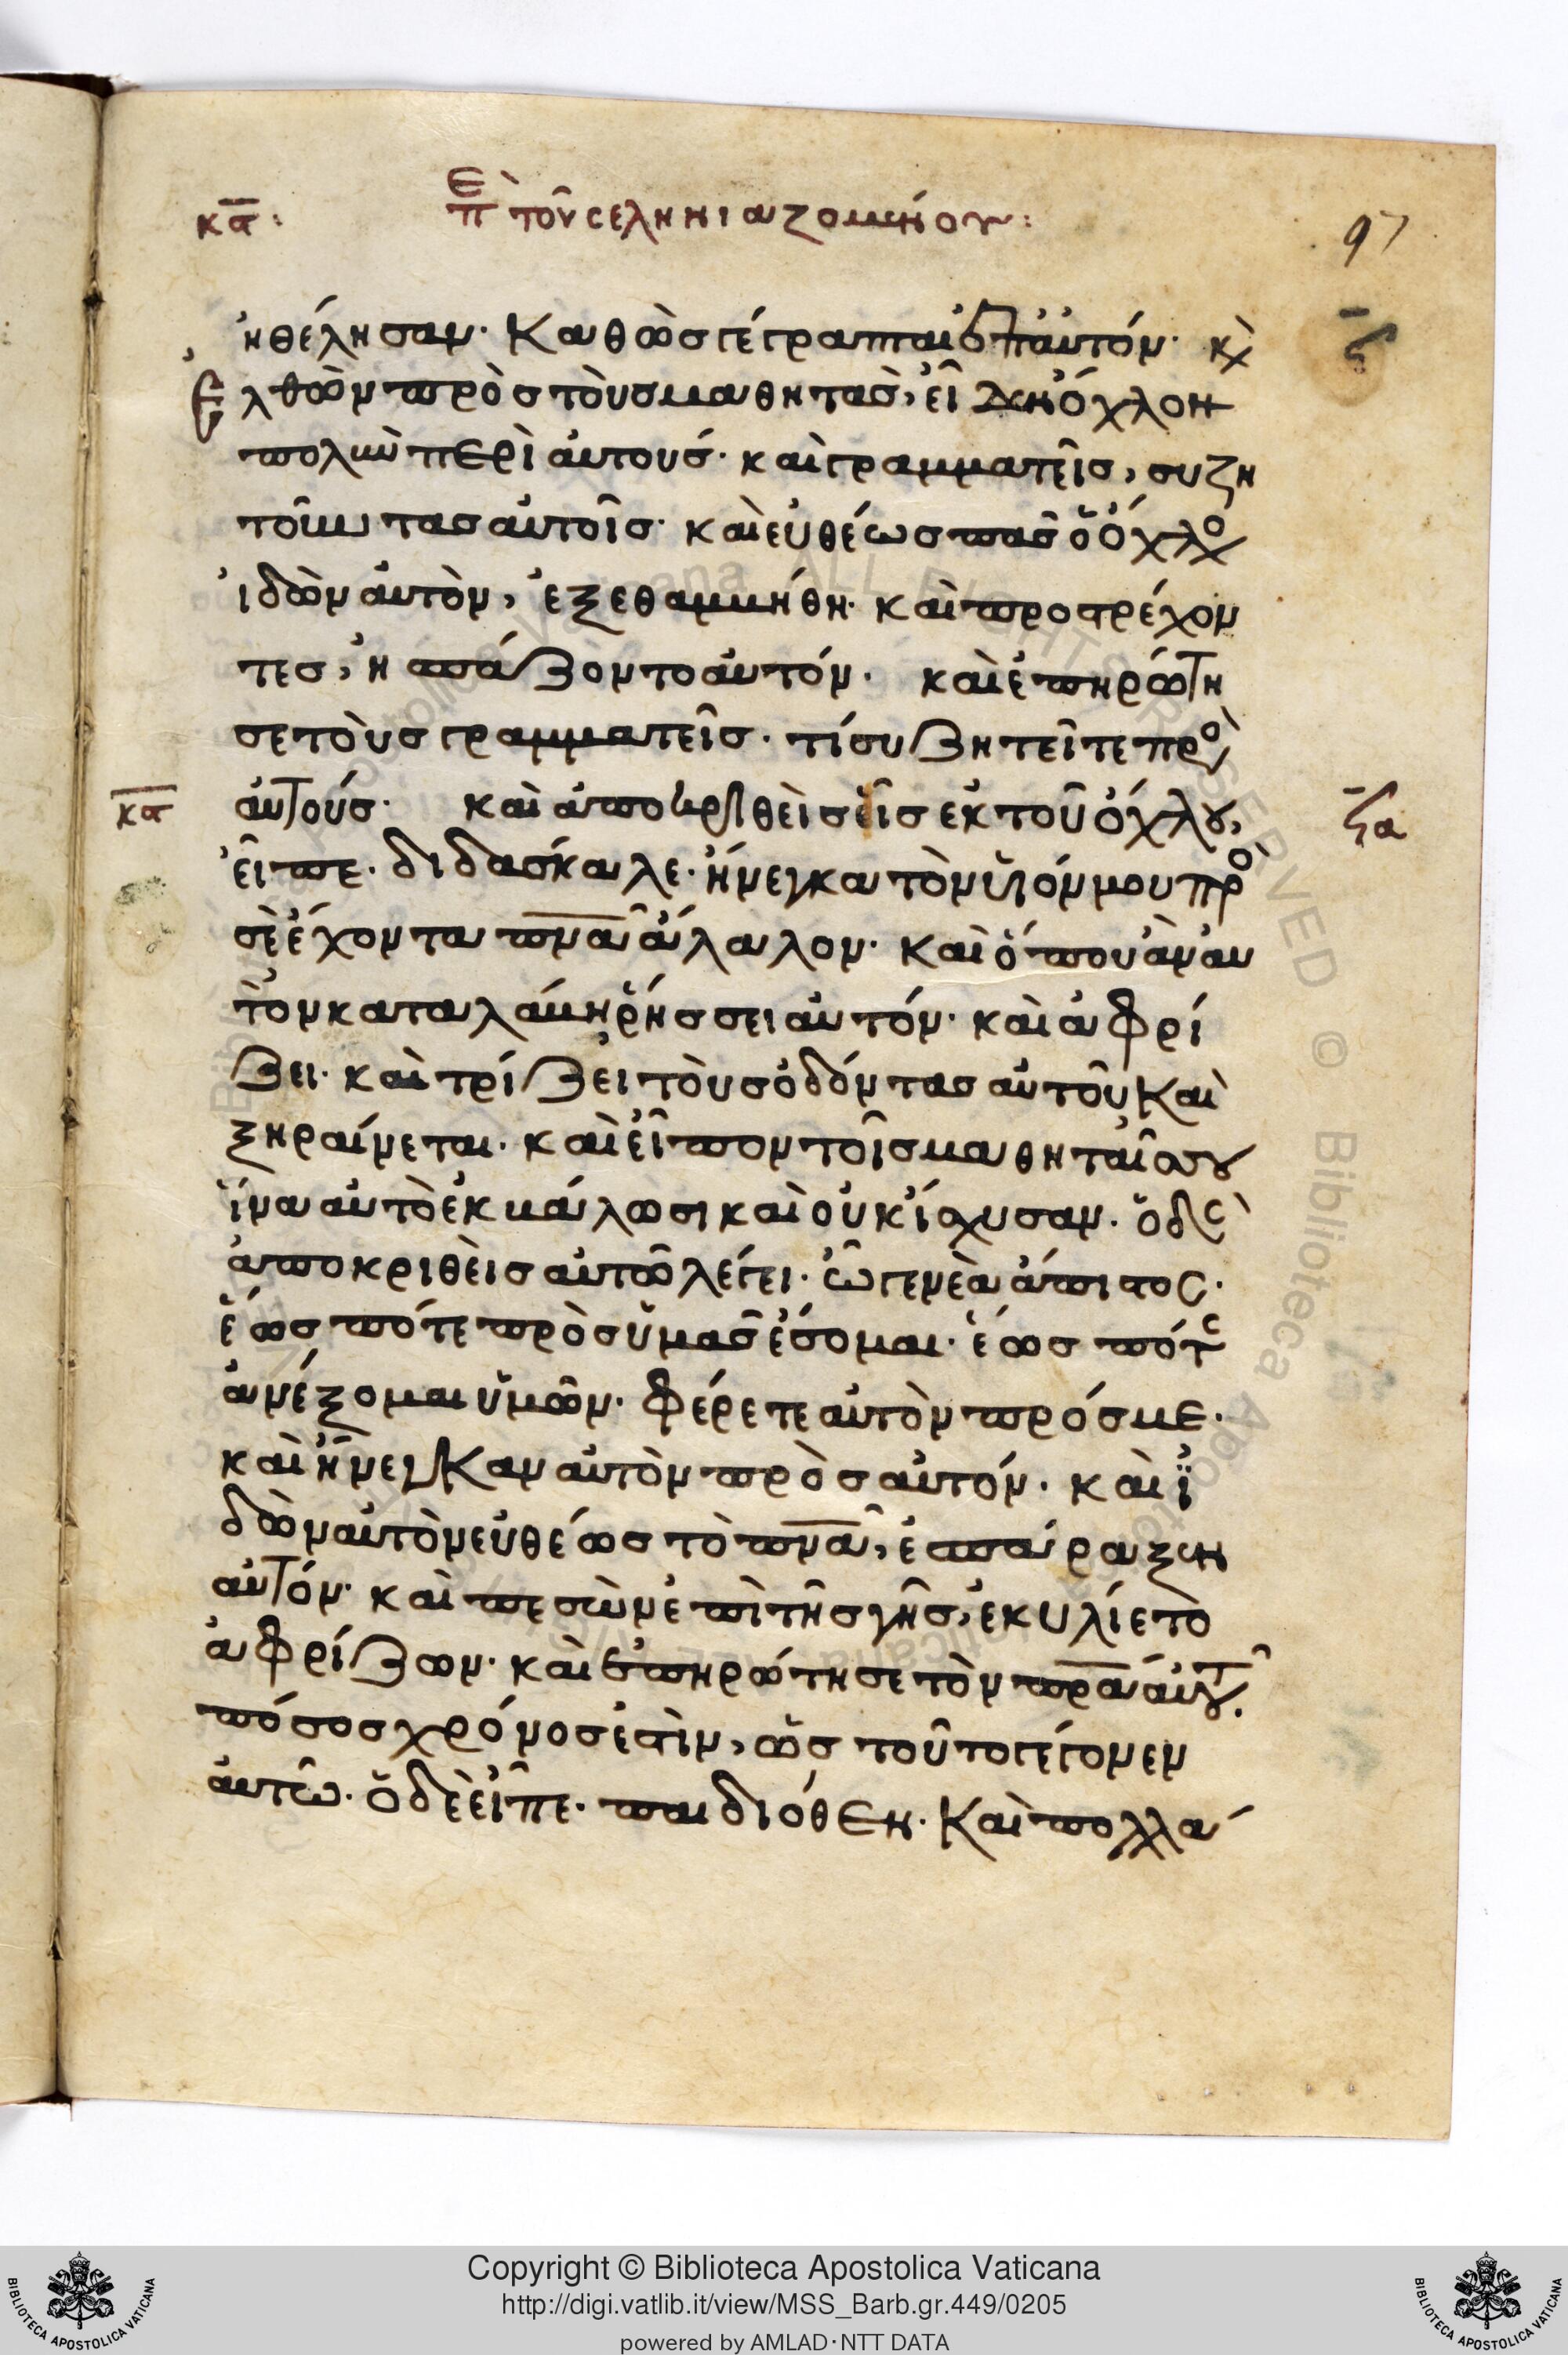 κα: Επὶ τοῦ σεληνιαζομένου:
97
ἠθέλησαν· Καθὼς γέγραπται ἐπ' αὐτόν· κ(αὶ)
Ἐλθὼν πρὸς τοὺς μαθητὰς, εἶδεν ὄχλον
πολὺν περὶ αὐτούς· καὶ γραμματεῖς, συζη
τοῦντας αὐτοῖς· καὶ εὐθέως πᾶς ὁ ὄχλο
ἰδὼν αὐτὸν, ἐξεθαμβήθη· καὶ προστρέχον
τες, ἠσπάζοντο αὐτόν· καὶ ἐπηρώτη
σε τοὺς γραμματεῖς· τί συζητεῖτε πρὸ
αὐτούς· καὶ ἀποκριθεὶς εἷς ἐκ τοῦ ὄχλου,
κα
ζα
εἶπε· διδάσκαλε· ἤνεγκα τὸν υἱόν μου πρὸ
σὲ ἔχοντα πνα ἄλαλον· καὶ ὅπου ἂν αυ
τὸν καταλάβη ῥήσσει αὐτόν· καὶ ἀφρί
ζει· καὶ τρίζει τοὺς ὀδόντας αὐτοῦ Καὶ
ξηραίνεται· καὶ εἶπον τοῖς μαθηταῖς σου
ἵνα αὐτὸ ἐκβάλωσι καὶ οὐκ ἴσχυσαν. ὁ δὲ
ἀποκριθεὶς αὐτῶ λέγει· ὦ γενεὰ ἄπιστος·
ἕως πότε πρὸς ὑμᾶς ἔσομαι· ἕως πότε
ἀνέξομαι ὑμῶν· φέρετε αὐτὸν πρός με·
καὶ ἤνεγκαν αὐτὸν πρὸς αὐτόν· καὶ ἰ
δὼν αὐτὸν εὐθέως τὸ πνα, ἐσπάραξεν
αὐτόν· καὶ πεσὼν ἐπὶ τῆς γῆς, ἐκυλίετο
ἀφρίζων· καὶ ἐπηρώτησε τὸν πρα αὐτοῦ.
πόσος χρόνος ἐστὶν, ὡς τοῦτο γέγονεν
αὐτῶ· ὁ δὲ εἶπε· παιδιόθεν· Καὶ πολλά
Copyright © Biblioteca Apostolica Vaticana
http://digi.vatlib.it/view/MSS_Barb.gr.449/0205
powered by AMLAD·NTT DATA